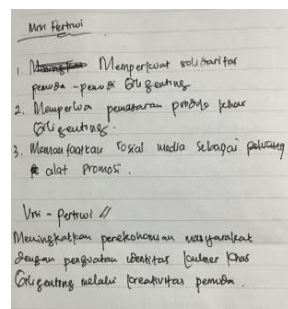 Misi Pertiwi
1. Memperkuat solidaritas
pemuda-pemudi Giligenting
2. Memperluas pemasaran produk khas
Giligenting.
3. Memanfaatkan sosial media sebagai
alat promosi.
Visi - Pertiwi //
Meningkatkan perekonomian masyarakat
dengan penguatan identitas kuliner khas
Giligenting melalui kreativitas pemuda.